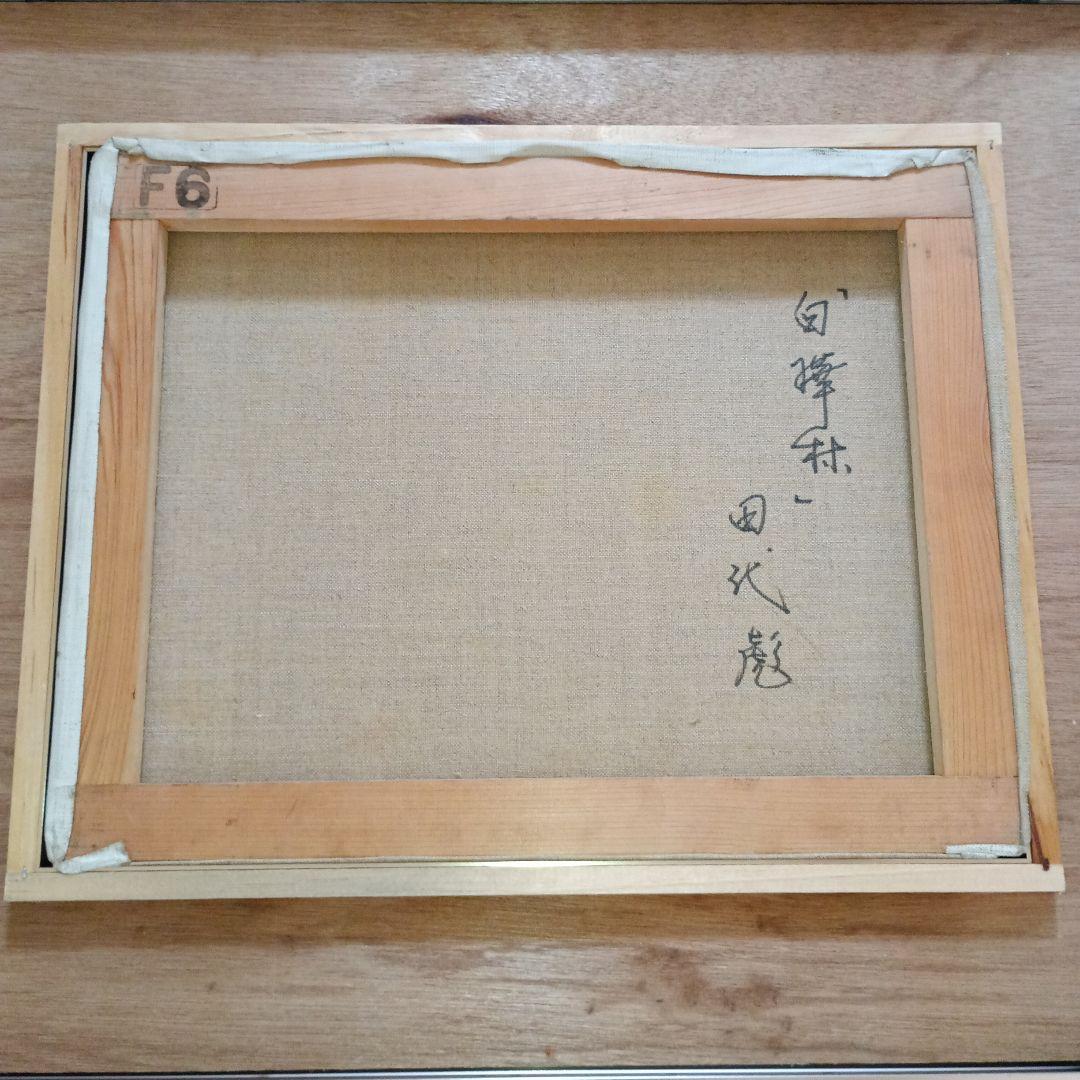 F6
「白樺林」
田代彪